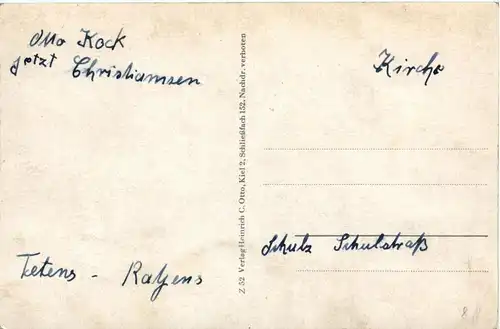 Otto Kock
jetzt Christiansen
Tetens - Ratjens
Z 52 Verlag Heinrich C. Otto, Kiel 2, Schließfach 152, Nachdr. verboten
Kirche
Schulz Schulstraß
8